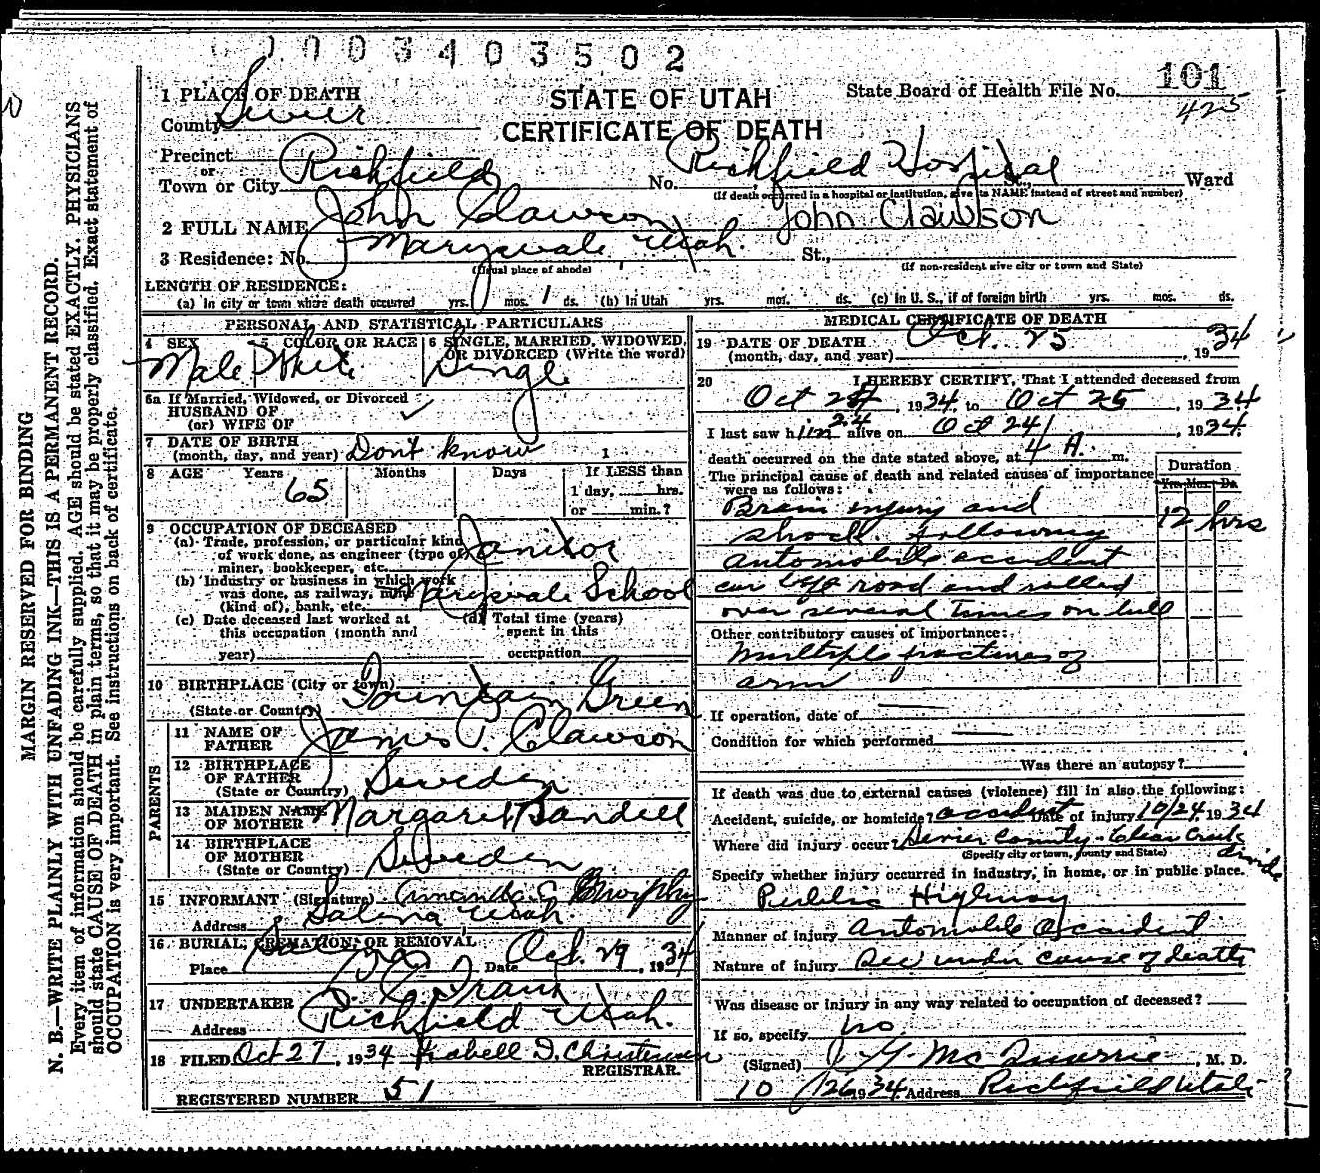 1003403502
101
425
1 PLACE OF DEATH
County Sevier
STATE OF UTAH
CERTIFICATE OF DEATH
State Board of Health File No.
Precinct
or
Town or City Richfield
No. Richfield Hospital St., Ward
(If death occurred in a hospital or institution, give its NAME instead of street and number)
2 FULL NAME John Clawson John Clawson
3 Residence: No. Marysvale Utah. St.,
(Usual place of abode) (If non-resident give city or town and State)
LENGTH OF RESIDENCE:
(a) In city or town where death occurred yrs. mos. 1 ds. (b) In Utah yrs. mos. ds. (c) In U. S., if of foreign birth yrs. mos. ds.
PERSONAL AND STATISTICAL PARTICULARS
4 SEX 5 COLOR OR RACE 6 SINGLE, MARRIED, WIDOWED,
OR DIVORCED (Write the word)
Male White Single
6a If Married, Widowed, or Divorced
HUSBAND OF
(or) WIFE OF
7 DATE OF BIRTH
(month, day, and year) Don't know 1
8 AGE Years Months Days If LESS than
65 1 day, hrs.
or min.?
9 OCCUPATION OF DECEASED
(a) Trade, profession, or particular kind
of work done, as engineer (type of
miner, bookkeeper, etc. Janitor
(b) Industry or business in which work
was done, as railway, mine
(kind of), bank, etc. Marysvale School
(c) Date deceased last worked at
this occupation (month and
year)
(d) Total time (years)
spent in this
occupation
10 BIRTHPLACE (City or town) Fountain Green
(State or Country)
PARENTS
11 NAME OF
FATHER James P. Clawson
12 BIRTHPLACE
OF FATHER
(State or Country) Sweden
13 MAIDEN NAME
OF MOTHER Margaret Bandell
14 BIRTHPLACE
OF MOTHER
(State or Country) Sweden
15 INFORMANT (Signature) Amanda C.
Address Salina Utah.
16 BURIAL, CREMATION, OR REMOVAL
Place Date Oct. 29, 1934
17 UNDERTAKER
Address Richfield Utah.
18 FILED Oct 27, 1934 Isabell I. Christensen
REGISTRAR.
REGISTERED NUMBER 51
MEDICAL CERTIFICATE OF DEATH
19 DATE OF DEATH
(month, day, and year) Oct. 25, 1934
20 I HEREBY CERTIFY, That I attended deceased from
Oct 24, 1934, to Oct 25, 1934
I last saw him alive on Oct 24, 1934
24
death occurred on the date stated above, at 4 A. m.
The principal cause of death and related causes of importance
were as follows:
Duration
Yrs. Mos. Ds.
Brain injury and
12 hrs
shock following
automobile accident
car left road and rolled
over several times on hill
Other contributory causes of importance:
Multiple fractures of
arm
If operation, date of
Condition for which performed
Was there an autopsy?
If death was due to external causes (violence) fill in also the following:
Accident, suicide, or homicide? accident Date of injury 10/24, 1934
Where did injury occur? Sevier County - Clear Creek divide
(Specify city or town, county and State)
Specify whether injury occurred in industry, in home, or in public place.
Public Highway
Manner of injury Automobile Accident
Nature of injury See under cause of death
Was disease or injury in any way related to occupation of deceased?
If so, specify no
(Signed) J. G. McQuarrie, M. D.
10/26 1934 Address Richfield Utah
MARGIN RESERVED FOR BINDING
N. B.—WRITE PLAINLY WITH UNFADING INK—THIS IS A PERMANENT RECORD.
Every item of information should be carefully supplied. AGE should be stated EXACTLY. PHYSICIANS
should state CAUSE OF DEATH in plain terms, so that it may be properly classified. Exact statement of
OCCUPATION is very important. See instructions on back of certificate.